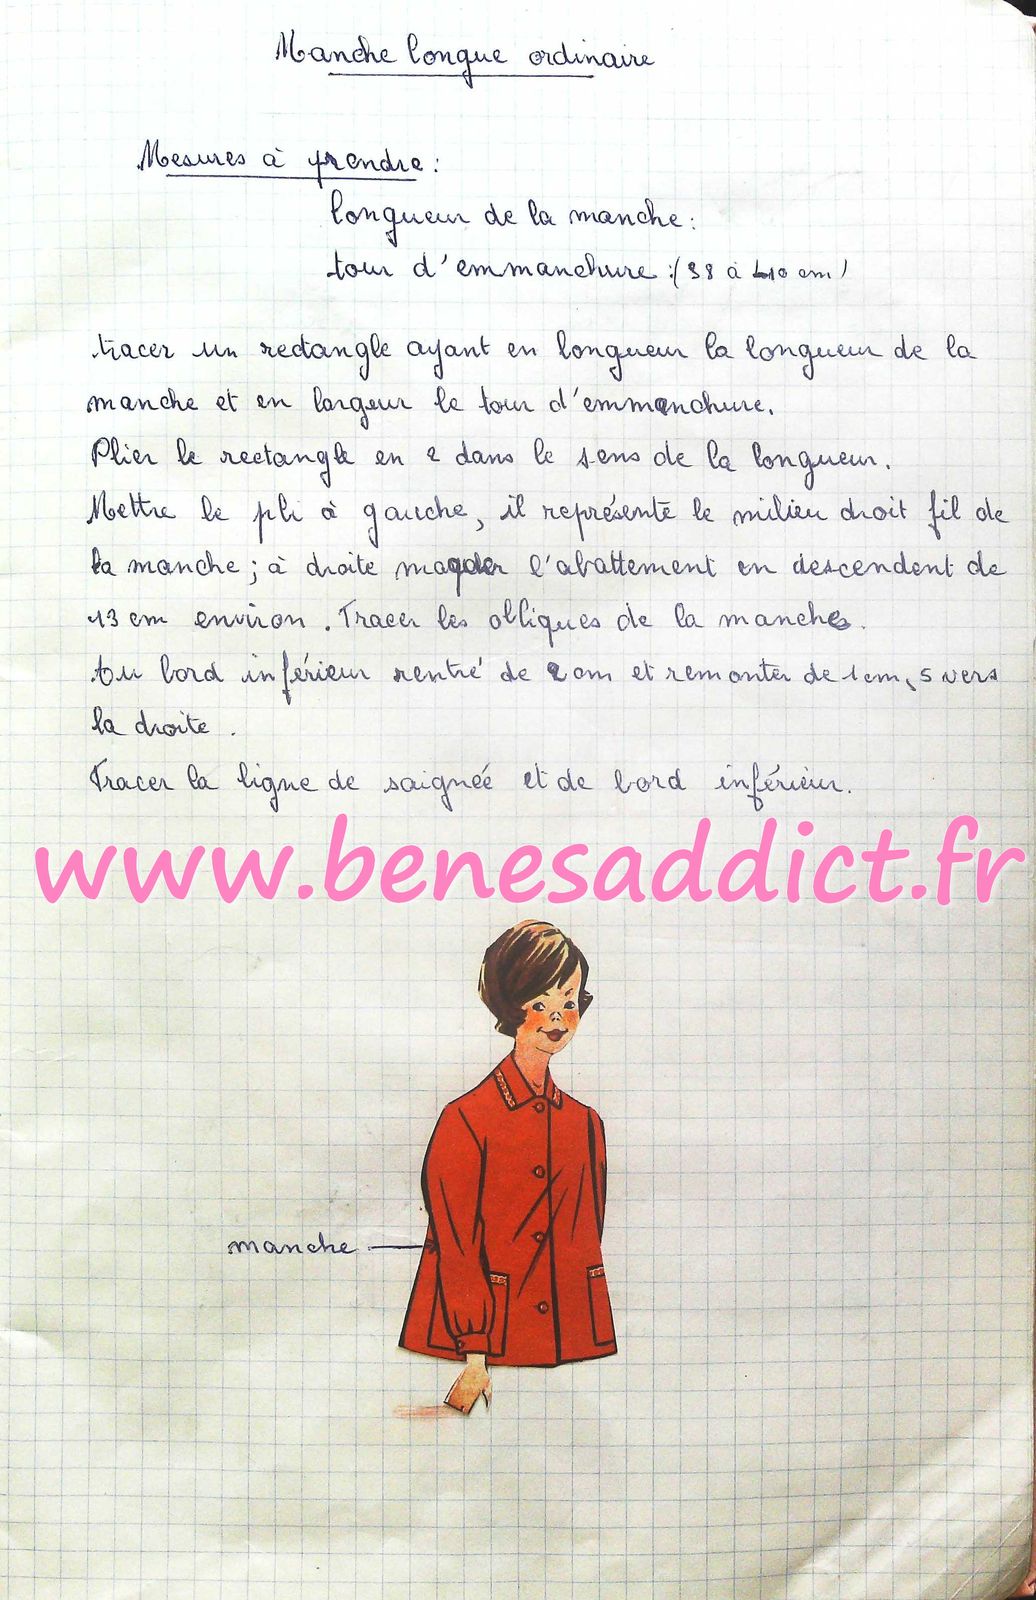 Manche longue ordinaire
Mesures à prendre :
longueur de la manche :
tour d'emmanchure : (38 à 40 cm)
tracer un rectangle ayant en longueur la longueur de la
manche et en largeur le tour d'emmanchure.
Plier le rectangle en 2 dans le sens de la longueur.
Mettre le pli à gauche, il représente le milieu droit fil de
la manche ; à droite l'abattement en descendent de
13 cm environ. Tracer les obliques de la manche.
Au bord inférieur rentré de 2 cm et remonter de 1 cm, 5 vers
la droite.
Tracer la ligne de saignée et de bord inférieur.
www.benesaddict.fr
manche